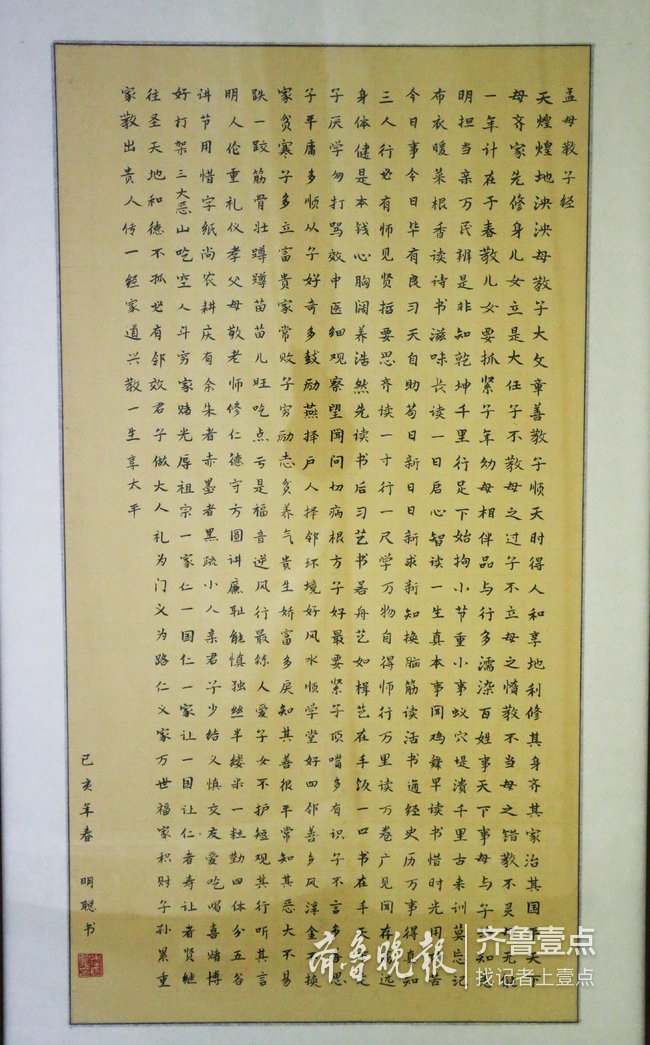 孟母教子经
天煌煌地泱泱母教子大文章善教子顺天时得人和享地利修其身齐其家治其国平天下
母齐家先修身儿女立是大任子不教母之过子不立母之惰教不当母之错教不灵母无
一年计在于春教儿女要抓紧子年幼母相伴品与行多濡染百姓事天下事母与子知
明担当亲万民辨是非知乾坤千里行足下始拘小节重小事蚁穴堤溃千里古来训莫忘记
布衣暖菜根香读诗书滋味长读一日启心智读一生真本事闻鸡舞早读书惜时光用苦
今日事今日毕有良习天自助苟日新日日新求新知换脑筋读活书通经史历万事得真知
三人行必有师见贤哲要思齐读一寸行一尺学万物自得师行万里读万卷广见闻存高远
身体健是本钱心胸阔养浩然先读书后习艺书若舟艺如楫艺在手饭一口书在手天走
子厌学勿打骂效中医细观察望闻问切病根方子好最要紧子顶嘴多有识子不言多思
子平庸多顺从子好奇多鼓励燕择户人择邻环境好风水顺学堂好四邻善乡风淳金不换
家贫寒子多立富贵家常败子穷励志贫养气贵生娇富多戾知其善很平常知其恶大不易
跌一跤筋骨壮蹲蹲苗苗儿旺吃点亏是福音逆风行最练人爱子女不护短观其行听其言
明人伦重礼仪孝父母敬老师修仁德守方圆讲廉耻能慎独丝半缕米一粒勤四体分五谷
讲节用惜字纸尚农耕庆有余朱者赤墨者黑疏小人亲君子少结义慎交友爱吃喝喜赌博
好打架三大恶山吃空人斗穷家赌光辱祖宗一家仁一国仁一家让一国让仁者寿让者贤继
往圣天地和德不孤必有邻效君子做大人礼为门义为路仁义家万世福家积财子孙累重
家教出贵人传一经家道兴教一生享太平
己亥年春 明聪书
齐鲁晚报 齐鲁壹点
找记者上壹点